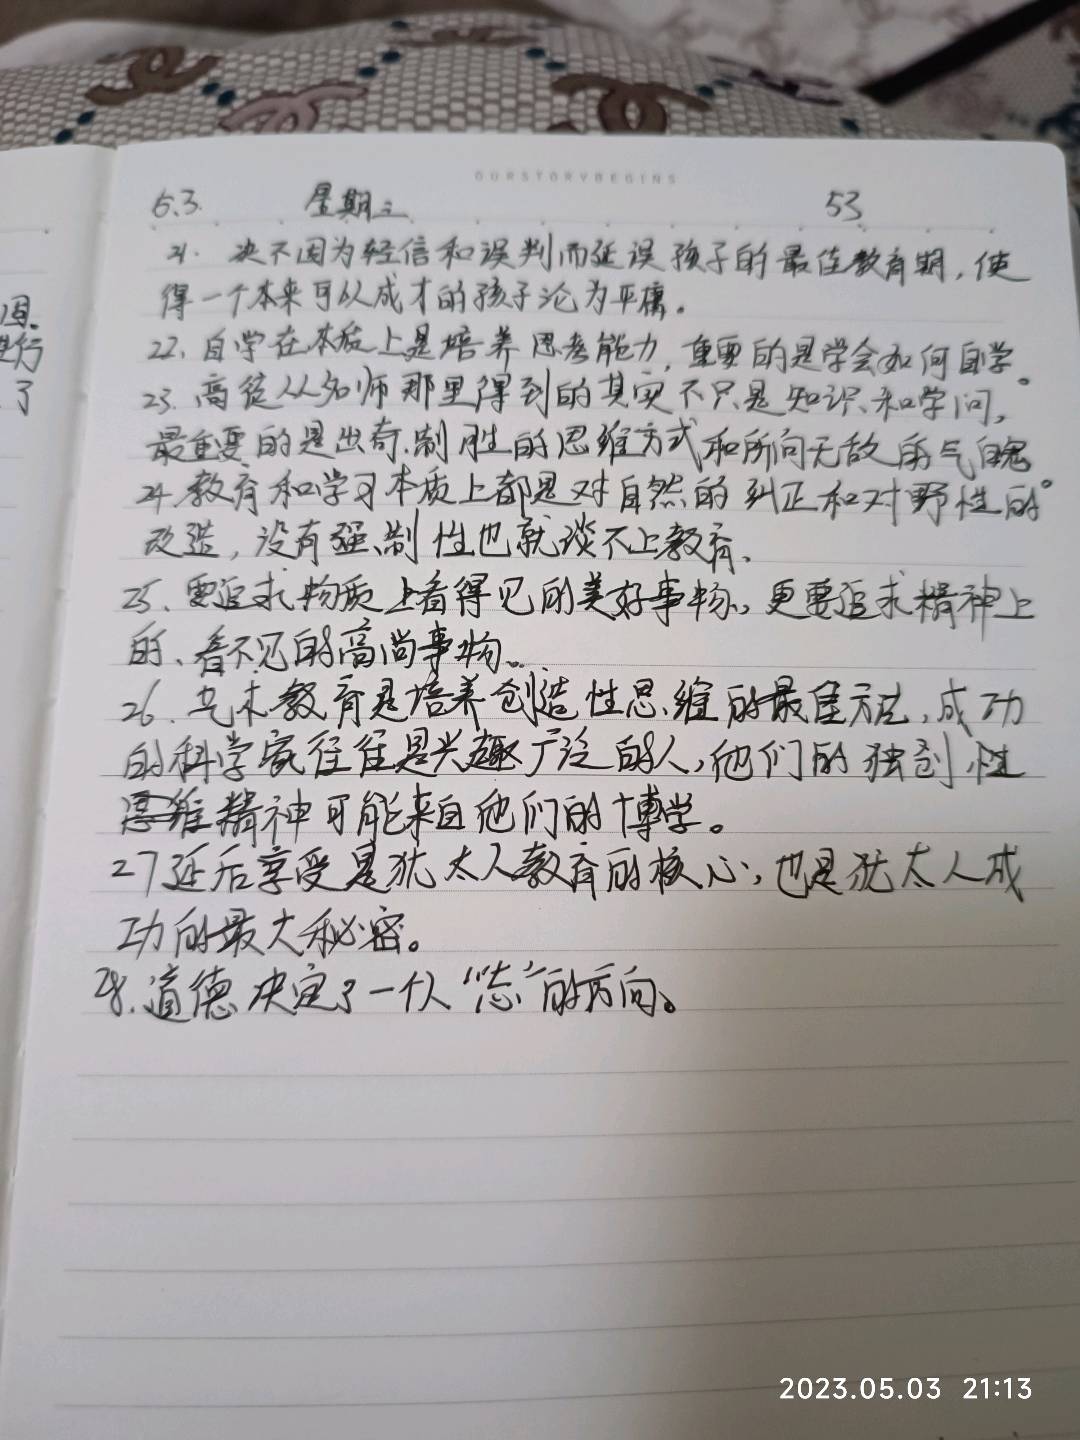 OURSTORYBEGINS
5.3. 星期三 53
21. 决不因为轻信和误判而延误孩子的最佳教育期，使
得一个本来可以成才的孩子沦为平庸。
22、自学在本质上是培养思考能力，重要的是学会如何自学。
23、高徒从名师那里得到的其实不只是知识和学问，
最重要的是出奇制胜的思维方式和所向无敌的气魄。
24、教育和学习本质上都是对自然的纠正和对野性的
改造，没有强制性也就谈不上教育、
25、要追求物质上看得见的美好事物、更要追求精神上
的、看不见的高尚事物。
26、艺术教育是培养创造性思维的最佳方法，成功
的科学家往往是兴趣广泛的人，他们的独创性
思维精神可能来自他们的博学。
27延后享受是犹太人教育的核心，也是犹太人成
功的最大秘密。
28、道德决定了一个人“志”的方向。
因.
进行
了
2023.05.03 21:13